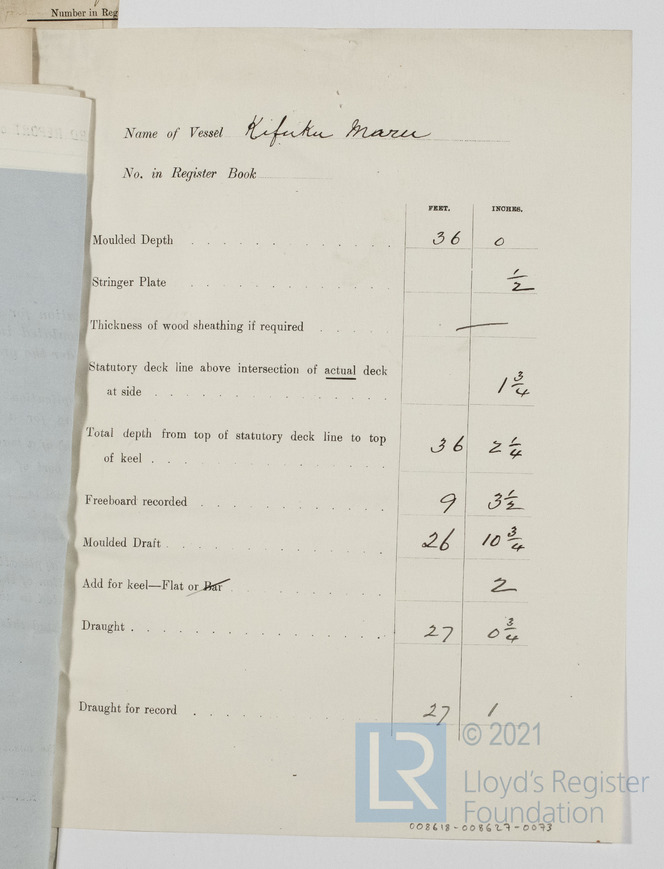 Number in Reg
Name of Vessel Kifuku Maru
No. in Register Book
FEET. INCHES.
Moulded Depth 36 0
Stringer Plate 1/2
Thickness of wood sheathing if required —
Statutory deck line above intersection of actual deck
at side 1 3/4
Total depth from top of statutory deck line to top
of keel 36 2 1/4
Freeboard recorded 9 3 1/2
Moulded Draft 26 10 3/4
Add for keel—Flat or Bar 2
Draught 27 0 3/4
Draught for record 27 1
LR
© 2021
Lloyd's Register
Foundation
008618-008627-0073